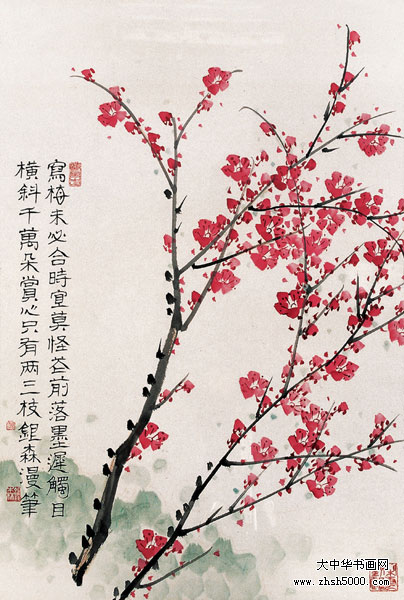 寫梅未必合時宜莫怪花前落墨遲觸目
橫斜千萬朵賞心只有两三枝鉏森漫筆
大中华书画网
www.zhsh5000.com